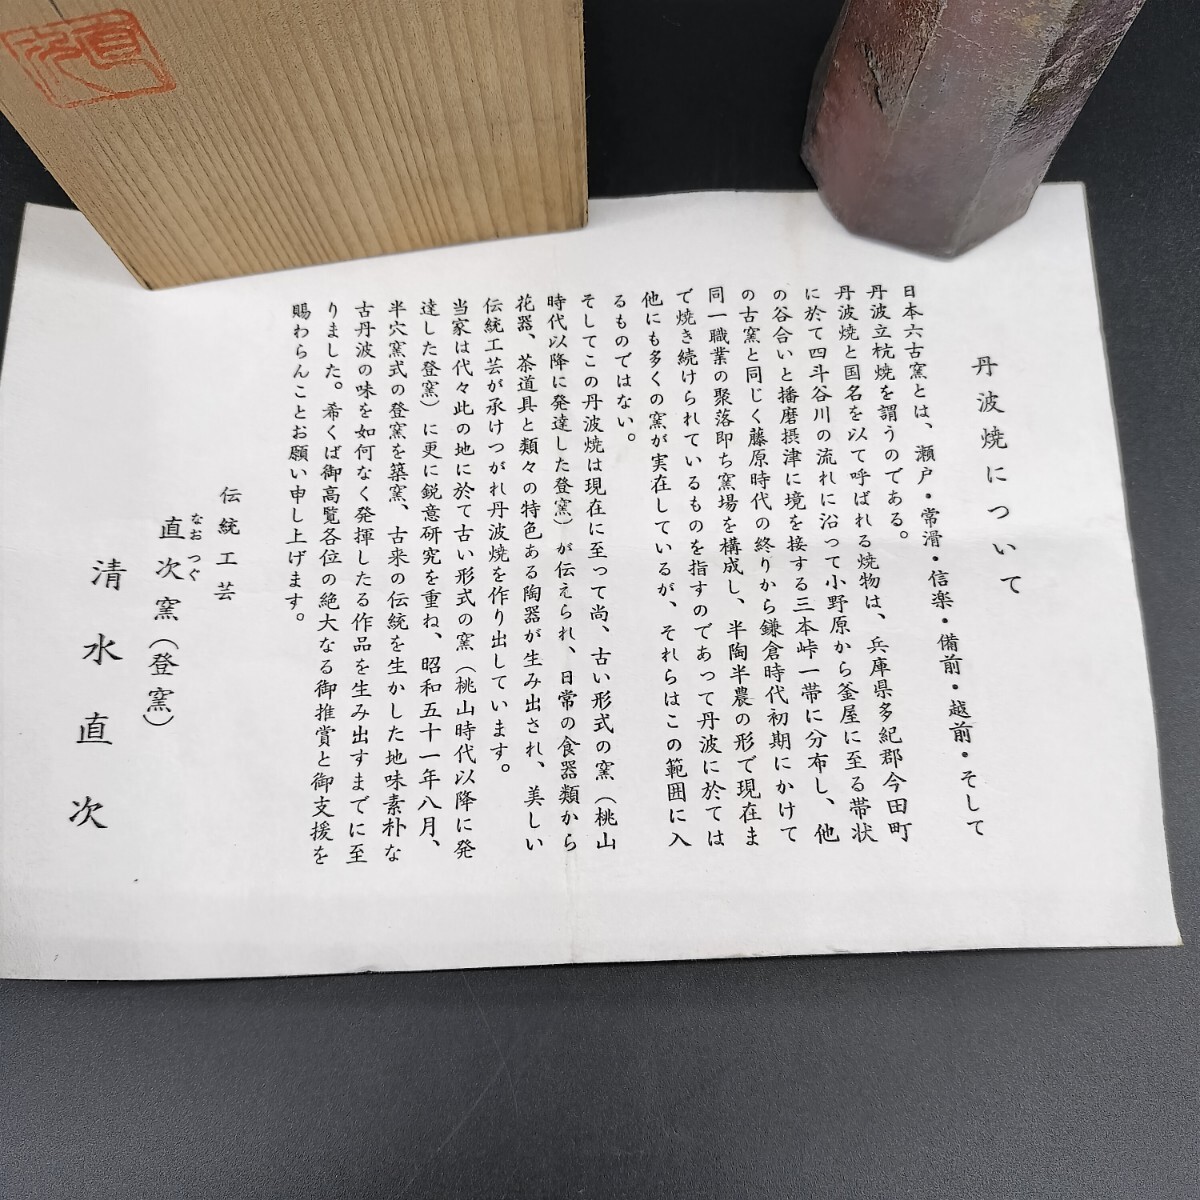 丹波焼について
日本六古窯とは、瀬戸・常滑・信楽・備前・越前・そして
丹波立杭焼を謂うのである。
丹波焼と国名を以て呼ばれる焼物は、兵庫県多紀郡今田町
に於て四斗谷川の流れに沿って小野原から釜屋に至る帯状
の谷合いと播磨摂津に境を接する三本峠一帯に分布し、他
の古窯と同じく藤原時代の終りから鎌倉時代初期にかけて
同一職業の聚落即ち窯場を構成し、半陶半農の形で現在ま
で焼き続けられているものを指すのであって丹波に於ては
他にも多くの窯が実在しているが、それらはこの範囲に入
るものではない。
そしてこの丹波焼は現在に至って尚、古い形式の窯（桃山
時代以降に発達した登窯）が伝えられ、日常の食器類から
花器、茶道具と類々の特色ある陶器が生み出され、美しい
伝統工芸が承けつがれ丹波焼を作り出しています。
当家は代々此の地に於て古い形式の窯（桃山時代以降に発
達した登窯）に更に鋭意研究を重ね、昭和五十一年八月、
半穴窯式の登窯を築窯、古来の伝統を生かした地味素朴な
古丹波の味を如何なく発揮したる作品を生み出すまでに至
りました。希くば御高覧各位の絶大なる御推賞と御支援を
賜わらんことお願い申し上げます。
伝統工芸
なおつぐ
直次窯（登窯）
清水直次